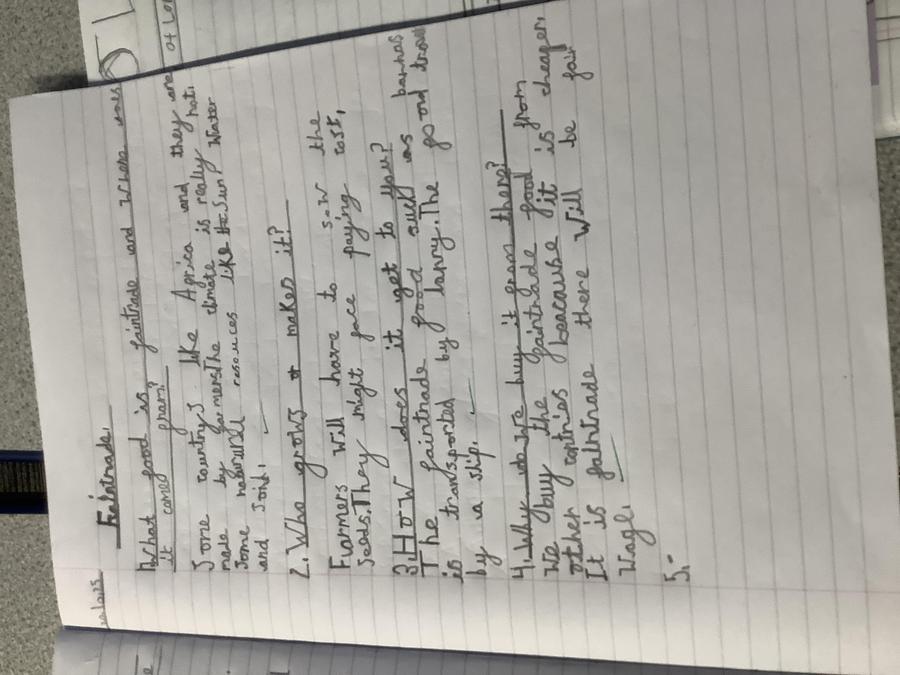 Faintrade.
What food is faintrade and where does
it comes from?
Some countrys like Africa and they are
made by farmers. The climate is really hot.
Some naturual resources like the Sun, Water
and Soil.
2. Who grows or makes it?
Farmers Will have to sow the
Seeds. They might face paying cost.
3. How does it get to you?
The faintrade food such as bannas
is transported by lanry. The good travel
by a ship.
4. Why do we buy it from there?
We buy the faintrade food from
other contries beacause it is cheaper.
It is faintrade there will be fair
Wage.
5.
of